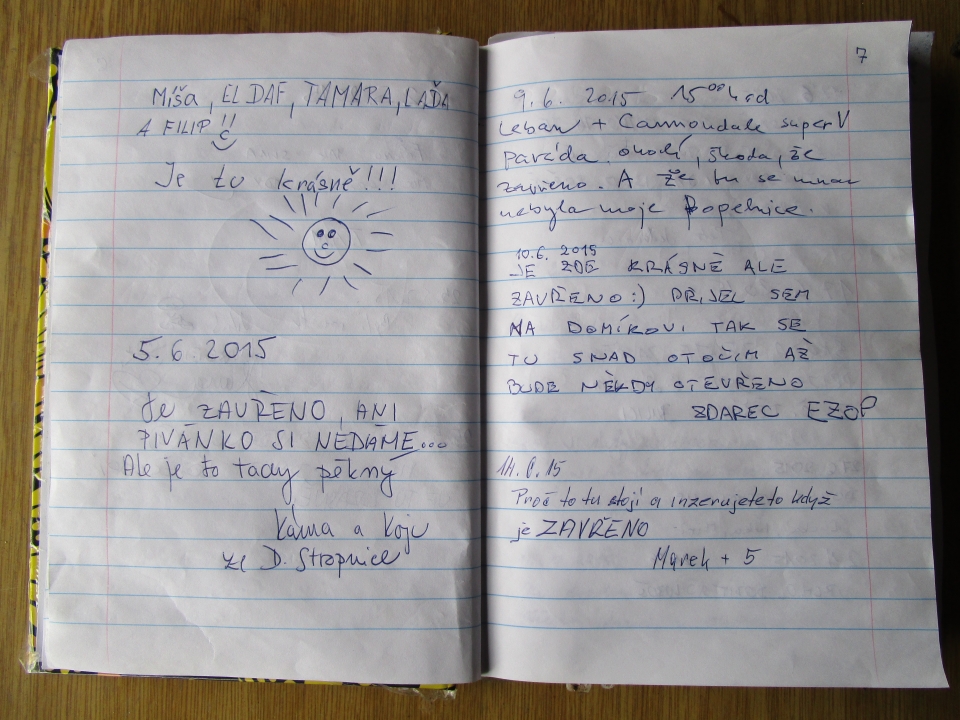 Míša, ELDAF, TAMARA, LAĎA
A FILIP!!
Je tu krásně!!!
5.6.2015
Je ZAVŘENO, ANI
PIVÁNKO SI NEDÁME...
Ale je to tady pěkný
a Koju
ze D. Stropnice
7
9.6. 2015 15⁰⁰
+ Cannondale super V
paráda okolí, škoda, že
zavřeno. A že tu se mnou
nebyla moje Popelnice.
10.6. 2015
JE ZDE KRÁSNĚ ALE
ZAVŘENO:) PŘIJEL SEM
NA DOMÍKOVI TAK SE
TU SNAD OTOČIM AŽ
BUDE NĚKDY OTEVŘENO
ZDAREC EZOP
14.6.15
Proč to tu stojí a inzerujete to když
je ZAVŘENO
Marek + 5